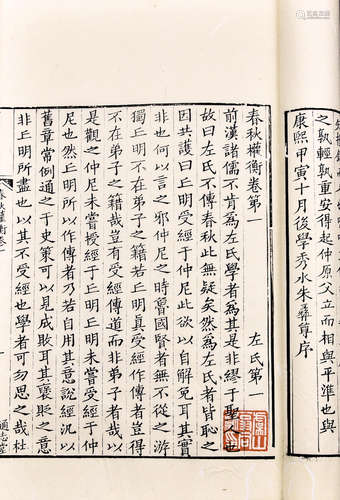 之孰輕孰重安得起仲原父立而相與平準也與
康熙甲寅十月後學秀水朱彝尊序
春秋權衡卷第一
左氏第一
前漢諸儒不肯為左氏學者為其是非繆于聖人也
故曰左氏不傳春秋此無疑矣然為左氏者皆恥之
因共護曰丘明受經于仲尼此欲以自解免耳其實
非也何以言之邪仲尼之時魯國賢者無不從之游
獨丘明不在弟子之籍若丘明真受經作傳者豈得
不在弟子之籍哉豈有受經傳道而非弟子者哉以
是觀之仲尼未嘗授經于丘明丘明未嘗受經于仲
尼也然丘明所以作傳者乃若自用其意說經汎以
舊章常例通之于史策可以見成敗耳其襃貶之意
非丘明所盡也以其不受經也學者可勿思之哉杜
春秋權衡卷一
通志堂